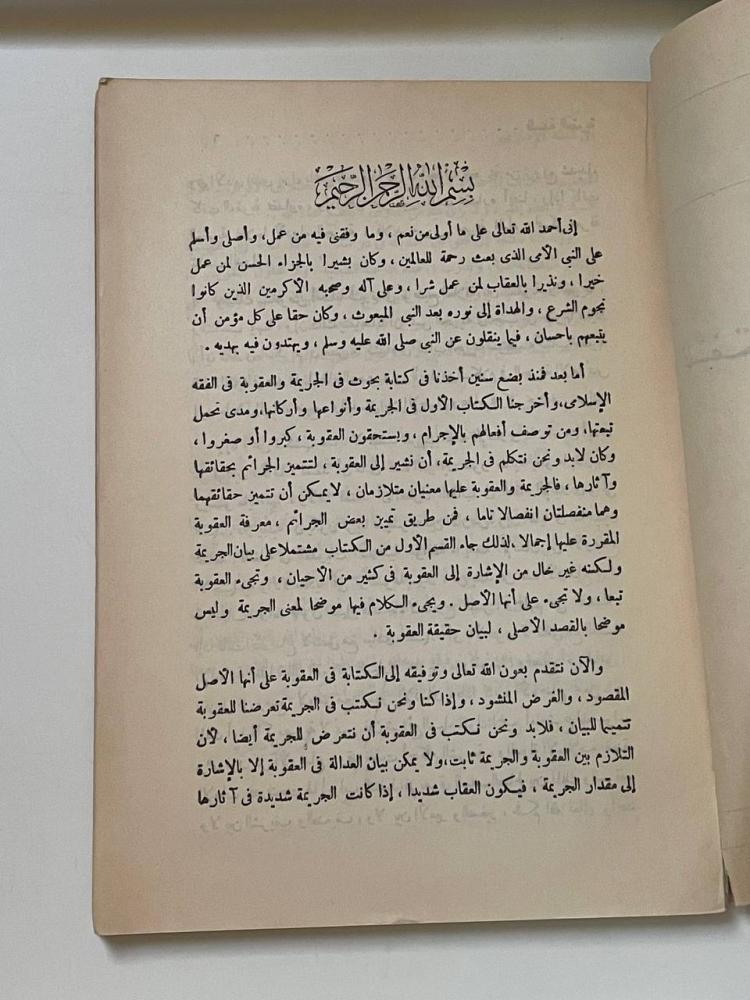 بسم الله الرحمن الرحيم
إنى أحمد الله تعالى على ما أولى من نعم، وما وفقنى فيه من عمل، وأصلى وأسلم
على النبى الأمى الذى بعث رحمة للعالمين، وكان بشيرا بالجزاء الحسن لمن عمل
خيرا، ونذيرا بالعقاب لمن عمل شرا، وعلى آله وصحبه الأكرمين الذين كانوا
نجوم الشرع، والهداة إلى نوره بعد النبى المبعوث، وكان حقا على كل مؤمن أن
يتبعهم باحسان، فيما ينقلون عن النبى صلى الله عليه وسلم، ويهتدون فيه بهديه.
أما بعد فمنذ بضع سنين أخذنا فى كتابة بحوث فى الجريمة والعقوبة فى الفقه
الإسلامى، وأخرجنا الكتاب الأول فى الجريمة وأنواعها وأركانها، ومدى تحمل
تبعتها، ومن توصف أفعالهم بالإجرام، ويستحقون العقوبة، كبروا أو صغروا،
وكان لابد ونحن نتكلم فى الجريمة، أن نشير إلى العقوبة، لتتميز الجرائم بحقائقها
وآثارها، فالجريمة والعقوبة عليها معنيان متلازمان، لايمكن أن تتميز حقائقهما
وهما منفصلتان انفصالا تاما، فمن طريق تمييز بعض الجرائم، معرفة العقوبة
المقررة عليها إجمالا، لذلك جاء القسم الأول من الكتاب مشتملا على بيان الجريمة
ولكنه غير خال من الإشارة إلى العقوبة فى كثير من الأحيان، وتجىء العقوبة
تبعا، ولا تجىء على أنها الأصل. ويجىء الكلام فيها موضحا لمعنى الجريمة وليس
موضحا بالقصد الأصلى، لبيان حقيقة العقوبة.
والآن نتقدم بعون الله تعالى وتوفيقه إلى الكتابة فى العقوبة على أنها الأصل
المقصود، والغرض المنشود، وإذا كنا ونحن نكتب فى الجريمة تعرضنا للعقوبة
تتميما للبيان، فلابد ونحن نكتب فى العقوبة أن نتعرض للجريمة أيضا، لأن
التلازم بين العقوبة والجريمة ثابت، ولا يمكن بيان العدالة فى العقوبة إلا بالإشارة
إلى مقدار الجريمة، فيكون العقاب شديدا، إذا كانت الجريمة شديدة فى آثارها